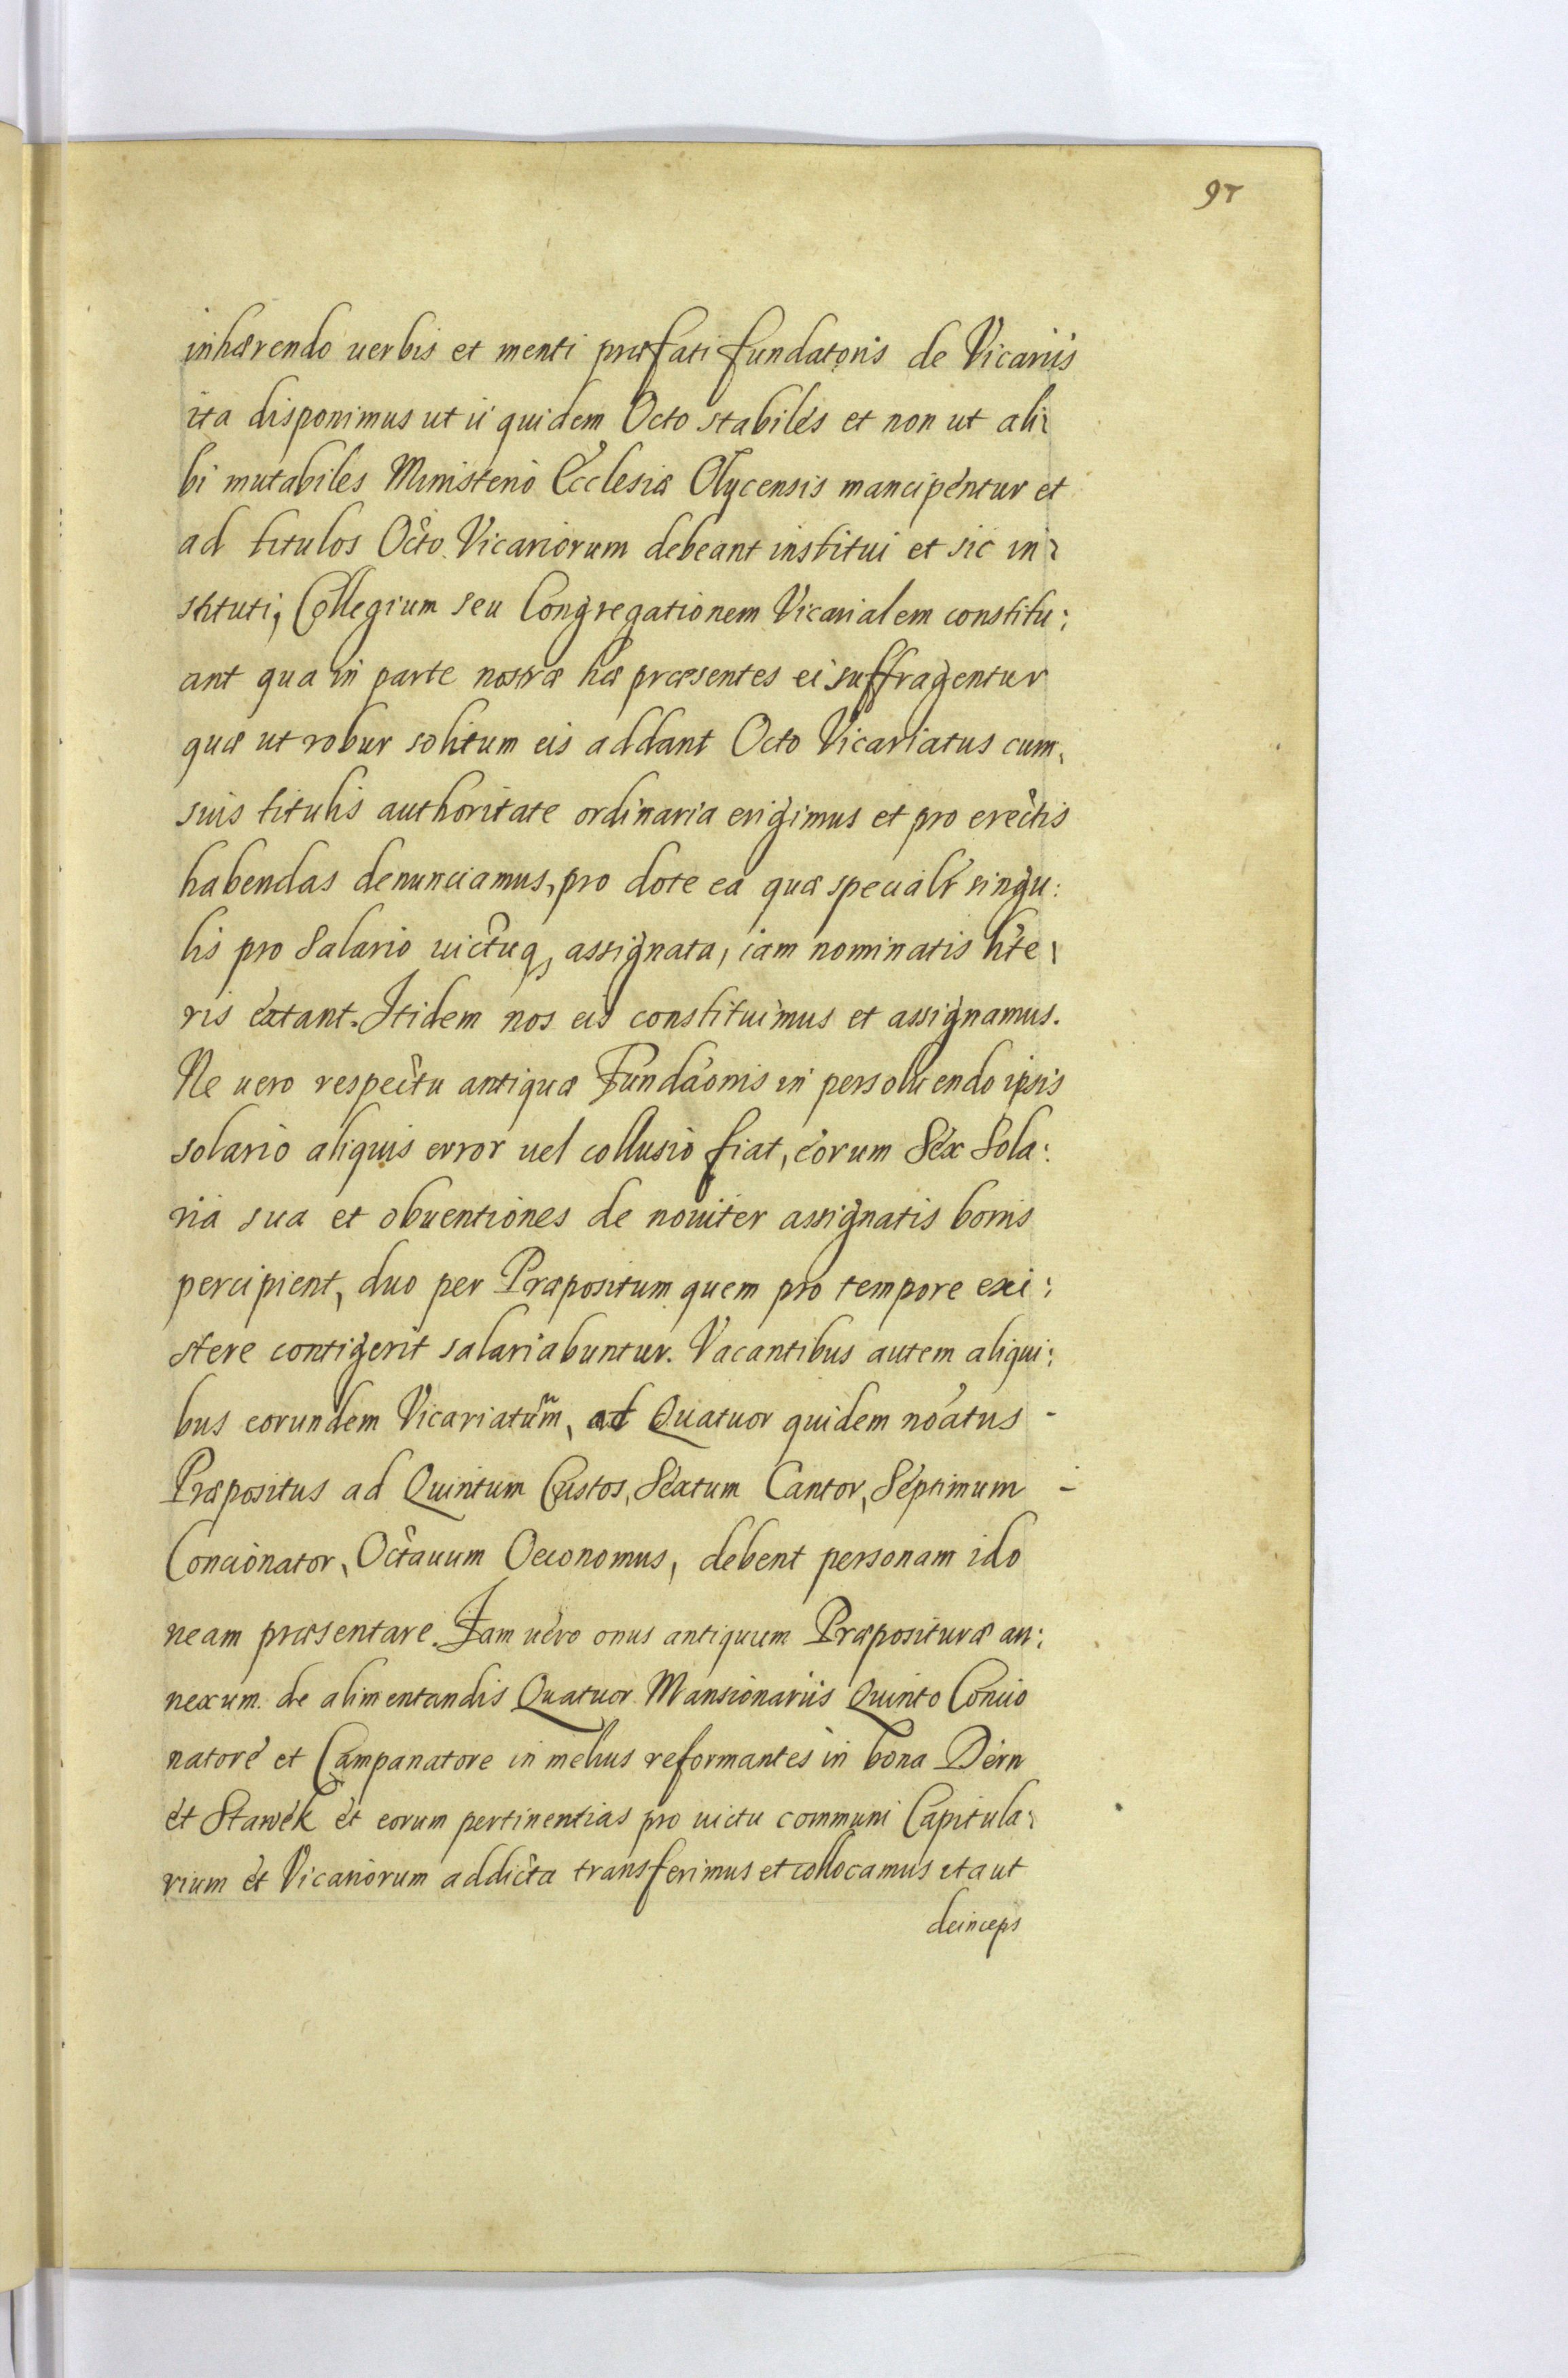 97
inhærendo uerbis et menti præfati fundatoris de Vicariis
ita disponimus ut ii quidem Octo stabiles et non ut ali:
bi mutabiles Ministerio Ecclesiæ Olycensis mancipentur et
ad titulos Octo Vicariorum debeant institui et sic in:
stituti, Collegium seu Congregationem Vicarialem constitu:
ant qua in parte nostræ hæ præsentes ei suffragentur
quæ ut robur solitum eis addant Octo Vicariatus cum
suis titulis authoritate ordinaria erigimus et pro erectis
habendas denunciamus, pro dote ea quæ specialr̃ singu:
lis pro Salario uictuq, assignata, iam nominatis lite:
ris extant. Itidem nos eis constituimus et assignamus.
Ne uero respectu antiquæ Fundãonis in persoluendo ipsis
solario aliquis error uel collusio fiat, eorum Sex Sola:
ria sua et obuentiones de nouiter assignatis bonis
percipient, duo per Præpositum quem pro tempore exi:
stere contigerit salariabuntur. Vacantibus autem aliqui:
bus eorundem Vicariatũm, ad Quatuor quidem nõatus -
Præpositus ad Quintum Custos, Sextum Cantor, Septimum -
Concionator, Octauum Oeconomus, debent personam ido
neam præsentare. Iam uero onus antiquum Præposituræ an:
nexum de alimentandis Quatuor Mansionariis Quinto Concio
natore et Campanatore in melius reformantes in bona Dern
et Stawek et eorum pertinentias pro uictu communi Capitula:
rium et Vicariorum addicta transferimus et collocamus ita ut
deinceps